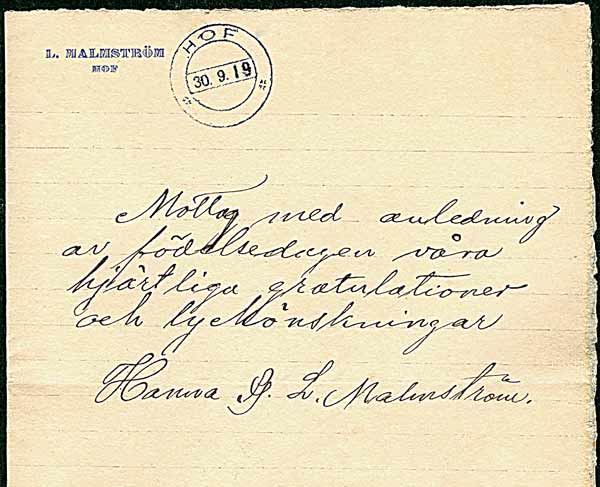 L. MALMSTRÖM
HOF
HOF
30. 9. 19
Mottag med anledning
av födelsedagen våra
hjärtliga gratulationer
och lyckönskningar
Hanna & L. Malmström.